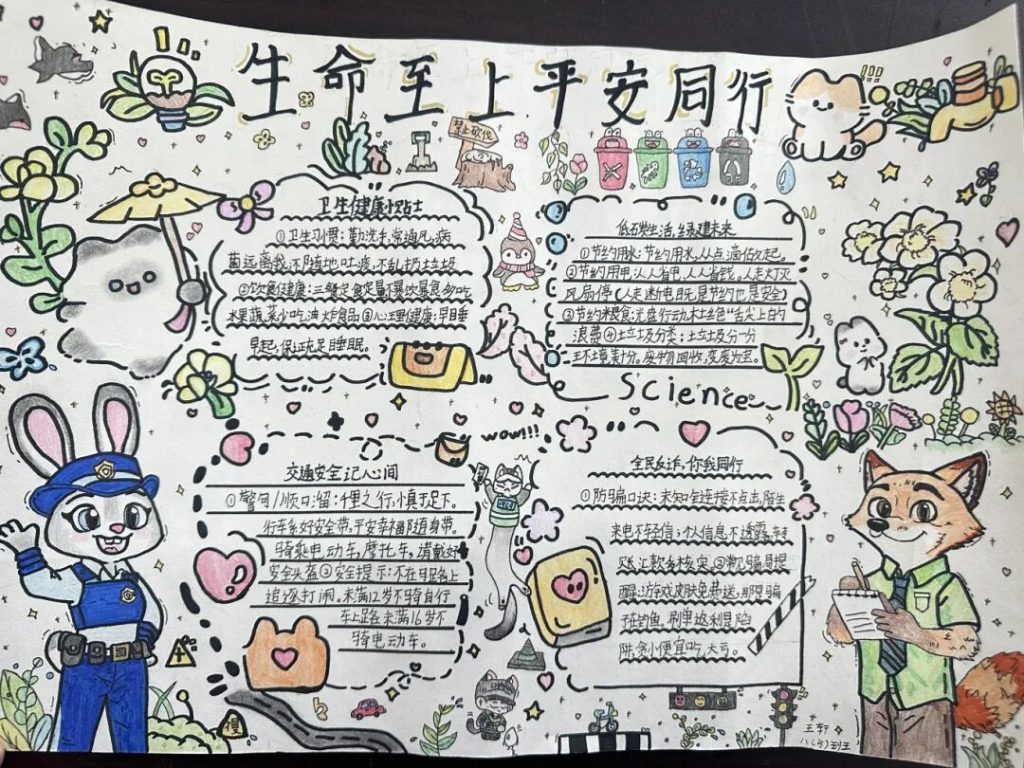 生命至上平安同行
禁止砍伐
卫生健康小贴士
①卫生习惯：勤洗手，常通风，病
菌远离我，不随地吐痰，不乱扔垃圾
②饮食健康：三餐定食定量不暴饮暴食，多吃
水果蔬菜少吃油炸食品③心理健康：早睡
早起，保证充足睡眠。
低碳生活，绿建未来
①节约用水：节约用水，从点滴做起。
②节约用电：人人省电，人人省钱，人走灯灭
风扇停（人走断电既是节约也是安全）
③节约粮食：光盘行动杜绝“舌尖上的
浪费④垃圾分类：垃圾分一分
环境美十分。废物回收，变废为宝。
Science
wow!!!
交通安全记心间
①警句/顺口溜：千里之行，慎于足下。
行车系好安全带，平安幸福随身带。
骑乘电动车，摩托车，请戴好
安全头盔②安全提示：不在马路上
追逐打闹，未满12岁不骑自行
车上路，未满16岁不
骑电动车。
全民反诈，你我同行
①防骗口诀：未知链接不点击，陌生
来电不轻信；个人信息不透露，转
账汇款多核实。②欺骗易提
醒：游戏皮肤免费送，那要骗
子钓鱼，刷单返利是陷
阱，贪小便宜吃大亏。
慢
王轩
八(4)班